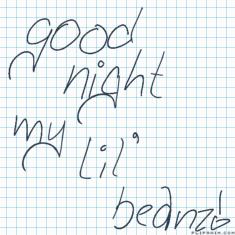 good
night
my
lil'
beanz!
FLIPANIM.COM